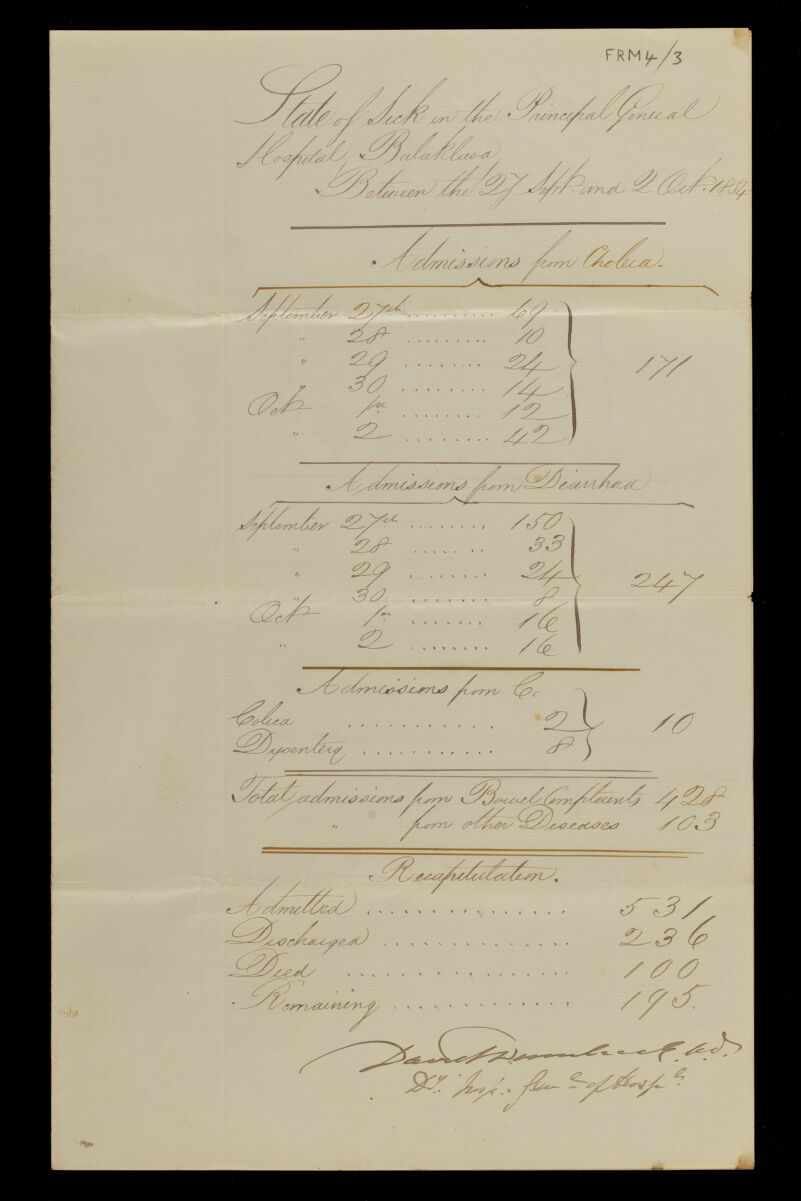 FRM4/3
State of Sick in the Principal General
Hospital, Balaklava,
Between the 27 Septr. and 2 Octr. 1854
Admissions from Cholera.
September 27th .......... 69
" 28 ......... 10
" 29 ........ 24
" 30 ........ 14
171
Octr. 1st ........ 12
" 2 ........ 42
Admissions from Diarrhoea
September 27th ........ 150
" 28 ....... 33
" 29 ........ 24
247
" 30 ........ 8
Octr. 1st ....... 16
" 2 ........ 16
Admissions from C.
Colica ........... 2
10
Dysentery ........... 8
Total, admissions from Bowel Complaints 428
" from other Diseases 103
Recapitulation.
Admitted ............... 531
Discharged .............. 236
Died ................. 100
Remaining ............. 195.
David Dumbreck M.D.
Dy. Insp. Genl. of Hospls.